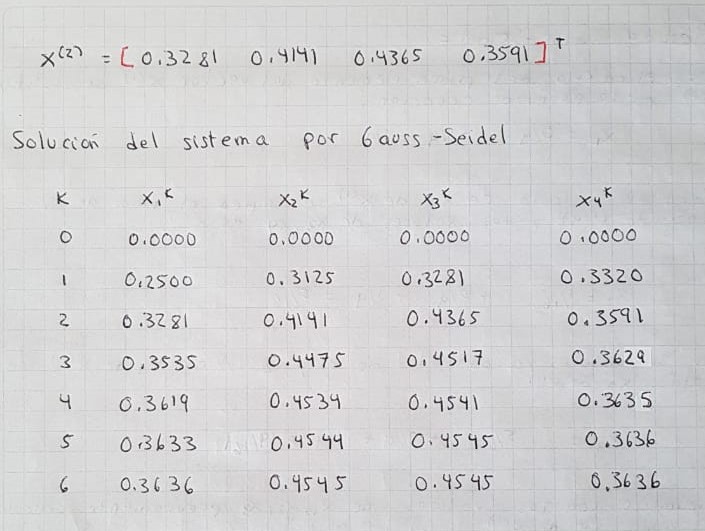 x⁽²⁾ = [ 0.3281 0.4141 0.4365 0.3591 ]ᵀ
Solución del sistema por Gauss-Seidel
K x₁ᴷ x₂ᴷ x₃ᴷ x₄ᴷ
0 0.0000 0.0000 0.0000 0.0000
1 0.2500 0.3125 0.3281 0.3320
2 0.3281 0.4141 0.4365 0.3591
3 0.3535 0.4475 0.4517 0.3629
4 0.3619 0.4534 0.4541 0.3635
5 0.3633 0.4544 0.4545 0.3636
6 0.3636 0.4545 0.4545 0.3636